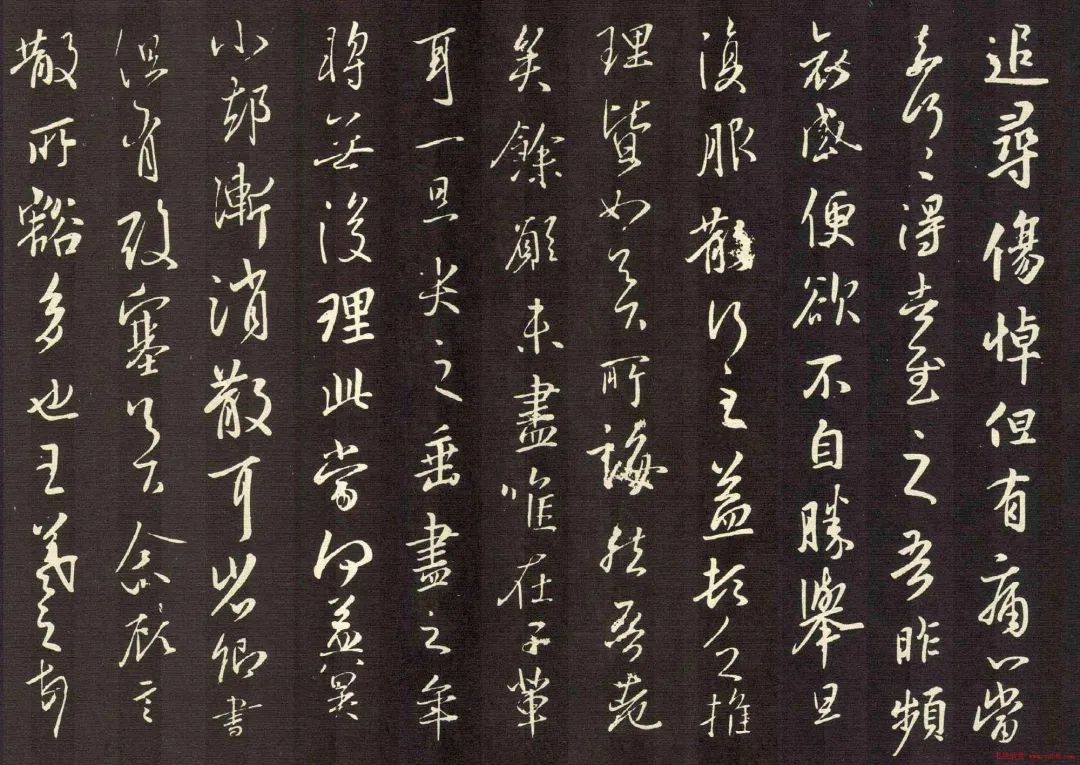 追尋傷悼但有痛心當
奈何〻得告慰之吾昨頻
哀感便欲不自勝舉旦
復服散行之益頓乏推
理皆如足下所誨然吾老
矣餘願未盡唯在子輩
耳一旦哭之垂盡之年
將無復理此當何益冀
小却漸消散耳省卿書
但有酸塞足下念故言
散所豁多也王羲之頓首